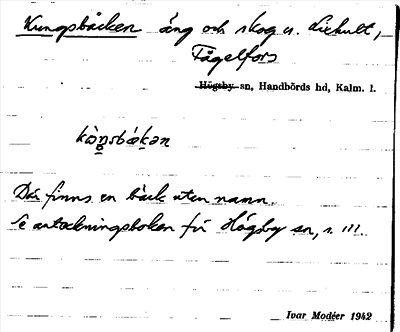 Kungsbäcken äng och skog u. Lixhult,
Fågelfors
Högsby sn, Handbörds hd, Kalm. l.
Där finns en bäck utan namn.
Se anteckningsboken för Högsby sn, s. 111.
Ivar Modéer 1942